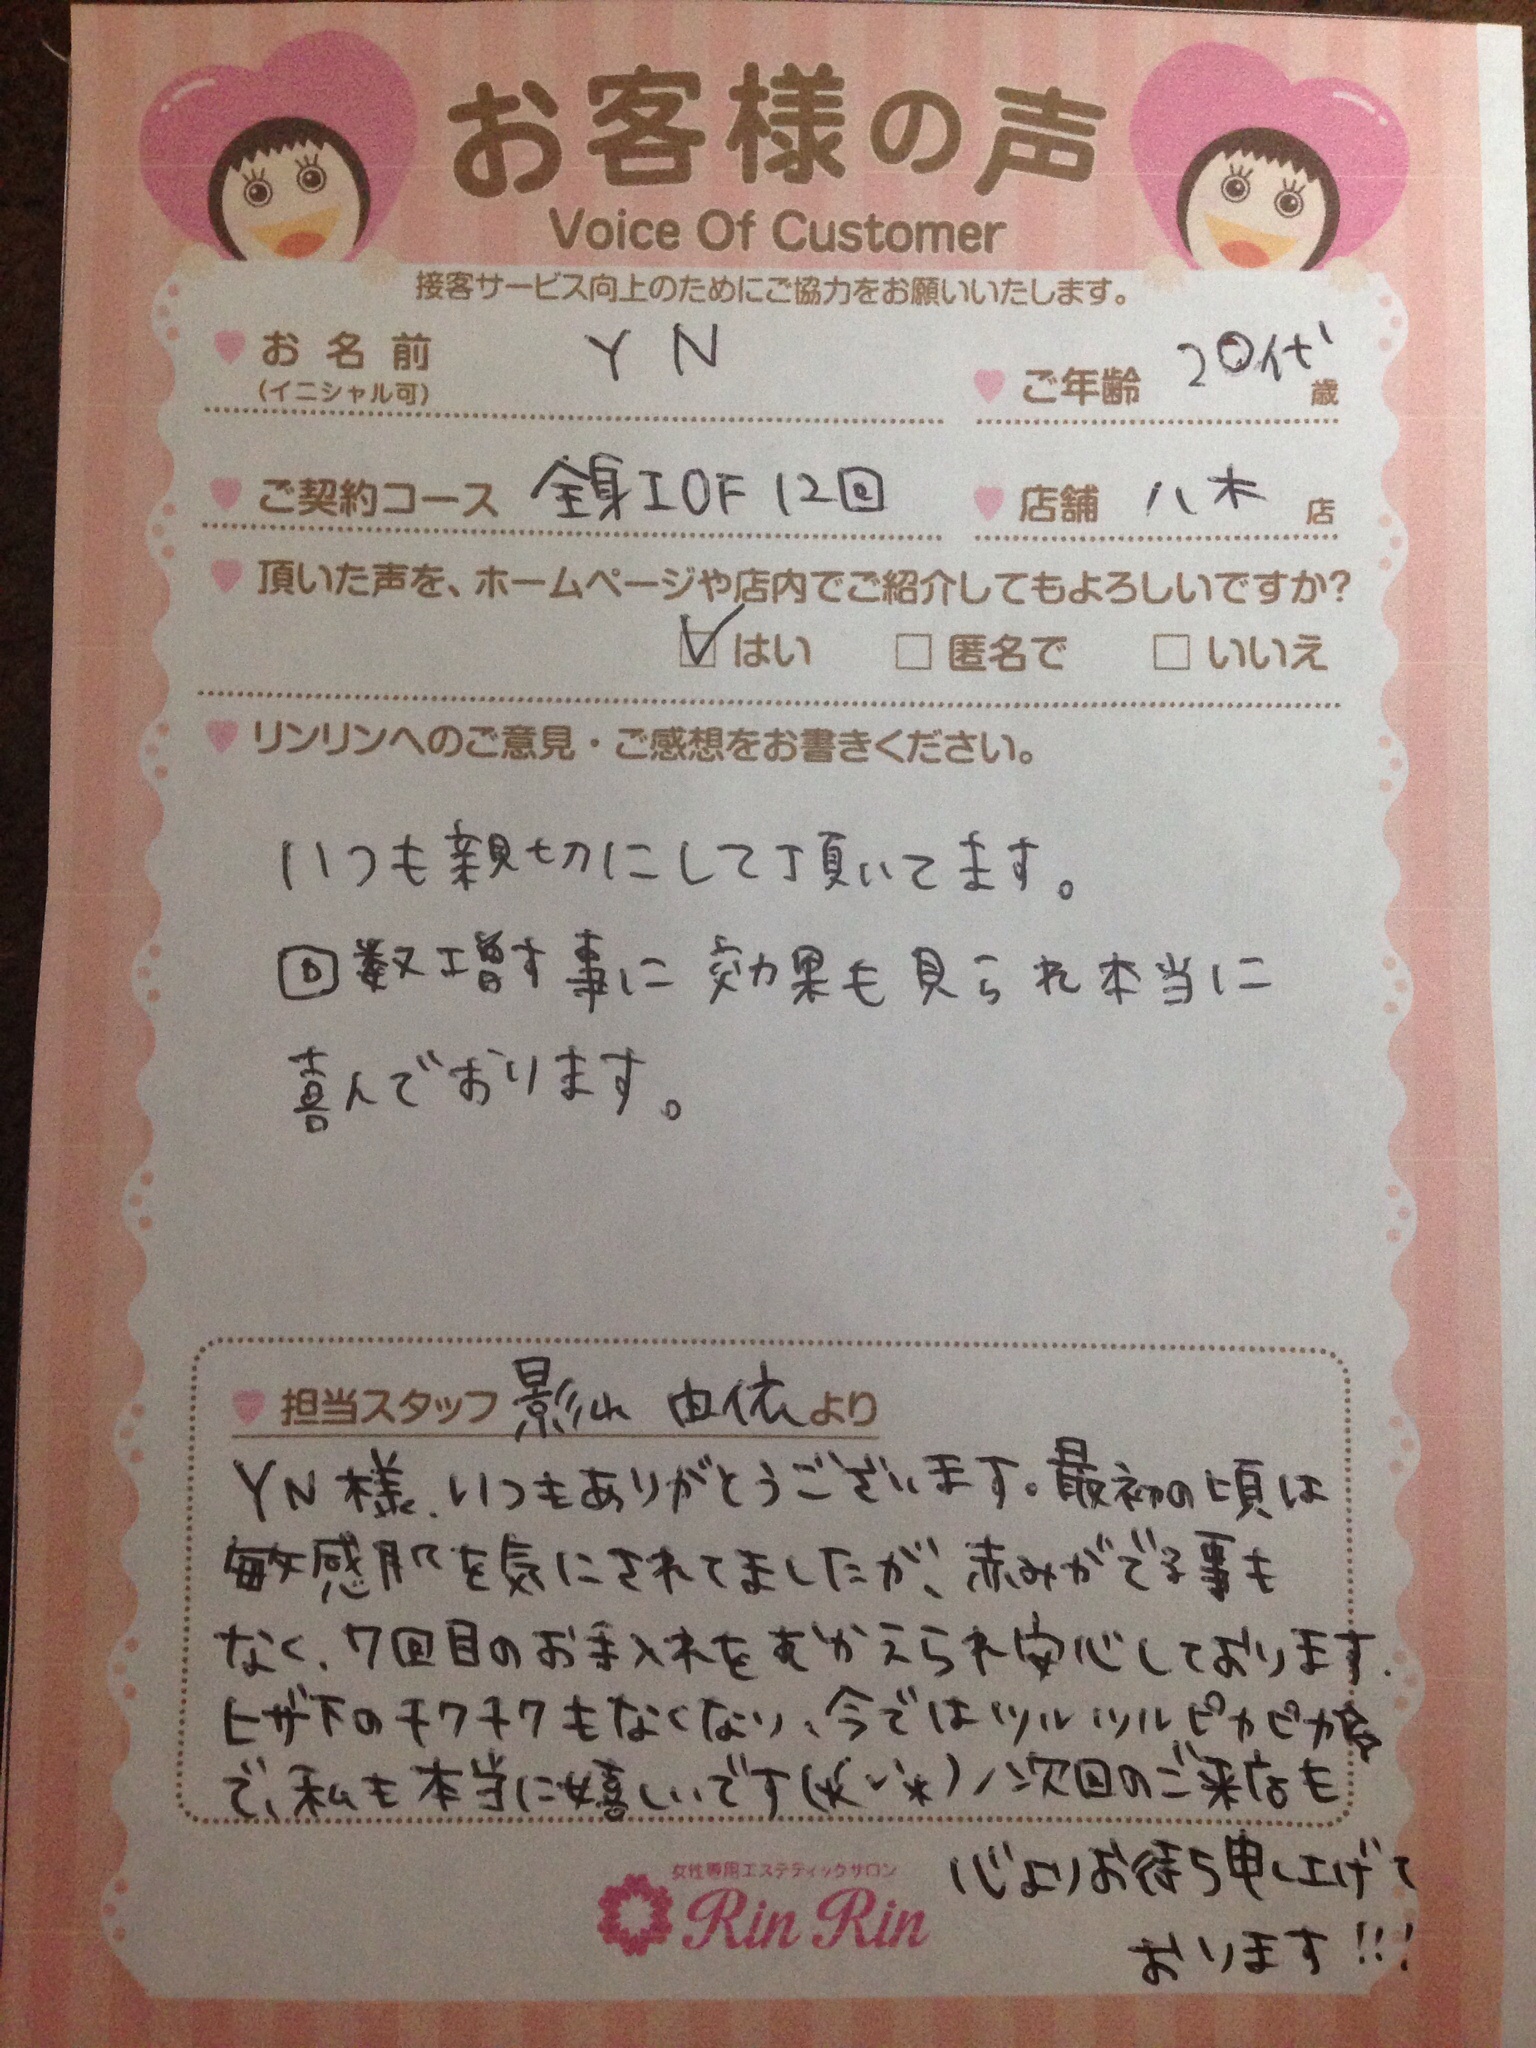 お客様の声
Voice Of Customer
接客サービス向上のためにご協力をお願いいたします。
お名前 YN
(イニシャル可)
ご年齢 20代 歳
ご契約コース 全身IOF 12回
店舗 八木 店
頂いた声を、ホームページや店内でご紹介してもよろしいですか?
はい 匿名で いいえ
リンリンへのご意見・ご感想をお書きください。
いつも親切にして頂いてます。
回数増す事に 効果も見られ本当に
喜んでおります。
担当スタッフ 影山 由依 より
YN様、いつもありがとうございます。最初の頃は
敏感肌を気にされてましたが、赤みがでる事も
なく、7回目のお手入れをむかえられ安心しております。
ヒザ下のチクチクもなくなり、今ではツルツルピカピカ☆
で、私も本当に嬉しいです(*^-^*)ノ次回のご来店も
心よりお待ち申し上げて
おります!!!
女性専用エステティックサロン
Rin Rin